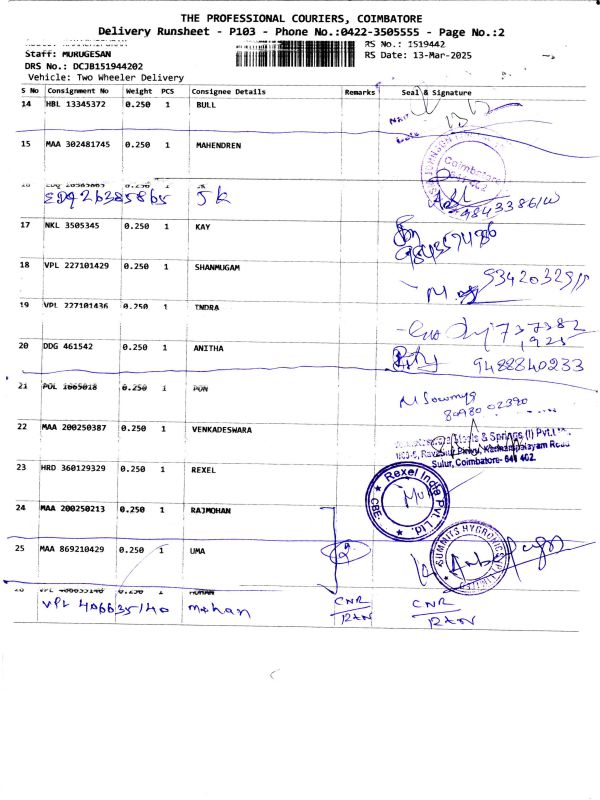 THE PROFESSIONAL COURIERS, COIMBATORE
Delivery Runsheet - P103 - Phone No.:0422-3505555 - Page No.:2
RS No.: 1519442
Staff: MURUGESAN
RS Date: 13-Mar-2025
DRS No.: DCJB151944202
Vehicle: Two Wheeler Delivery
S No Consignment No Weight PCS Consignee Details Remarks Seal & Signature
14 HBL 13345372 0.250 1 BULL
15 MAA 302481745 0.250 1 MAHENDREN
Coimbatore
EDQ 26385865 JK
9843386
17 NKL 3505345 0.250 1 KAY
18 VPL 227101429 0.250 1 SHANMUGAM
9342032911
19 VPL 227101436 0.250 1 INDRA
737382
1925
20 DDG 461542 0.250 1 ANITHA
9488840233
21 POL 1665018 0.250 1 PON
M Sowmya
8098002390
22 MAA 200250387 0.250 1 VENKADESWARA
Steels & Springs (I) Pvt.Ltd.
Sulur, Coimbatore- 641 402.
23 HRD 360129329 0.250 1 REXEL
Rexel India Pvt. Ltd.
CBE
24 MAA 200250213 0.250 1 RAJMOHAN
25 MAA 869210429 0.250 1 UMA
SUMMITS HYGRONICS
VPL 406635140 mohan CNR CNR